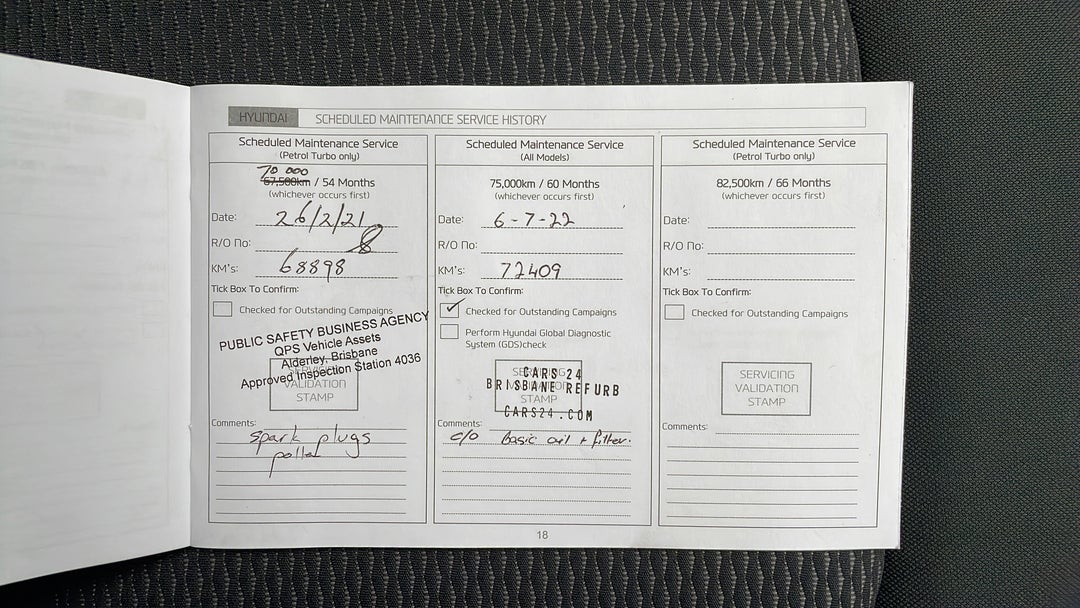 HYUNDAI SCHEDULED MAINTENANCE SERVICE HISTORY
Scheduled Maintenance Service
(Petrol Turbo only)
70 000
67,500km / 54 Months
(whichever occurs first)
Date: 26/2/21
R/O No:
KM's: 68898
Tick Box To Confirm:
Checked for Outstanding Campaigns
PUBLIC SAFETY BUSINESS AGENCY
QPS Vehicle Assets
Alderley, Brisbane
Approved Inspection Station 4036
SERVICING
VALIDATION
STAMP
Comments:
spark plugs
pollen
Scheduled Maintenance Service
(All Models)
75,000km / 60 Months
(whichever occurs first)
Date: 6-7-22
R/O No:
KM's: 72409
Tick Box To Confirm:
Checked for Outstanding Campaigns
Perform Hyundai Global Diagnostic
System (GDS)check
SERVICING
VALIDATION
STAMP
CARS 24
BRISBANE REFURB
CARS24.COM
Comments:
c/o Basic oil + filter.
Scheduled Maintenance Service
(Petrol Turbo only)
82,500km / 66 Months
(whichever occurs first)
Date:
R/O No:
KM's:
Tick Box To Confirm:
Checked for Outstanding Campaigns
SERVICING
VALIDATION
STAMP
Comments:
18